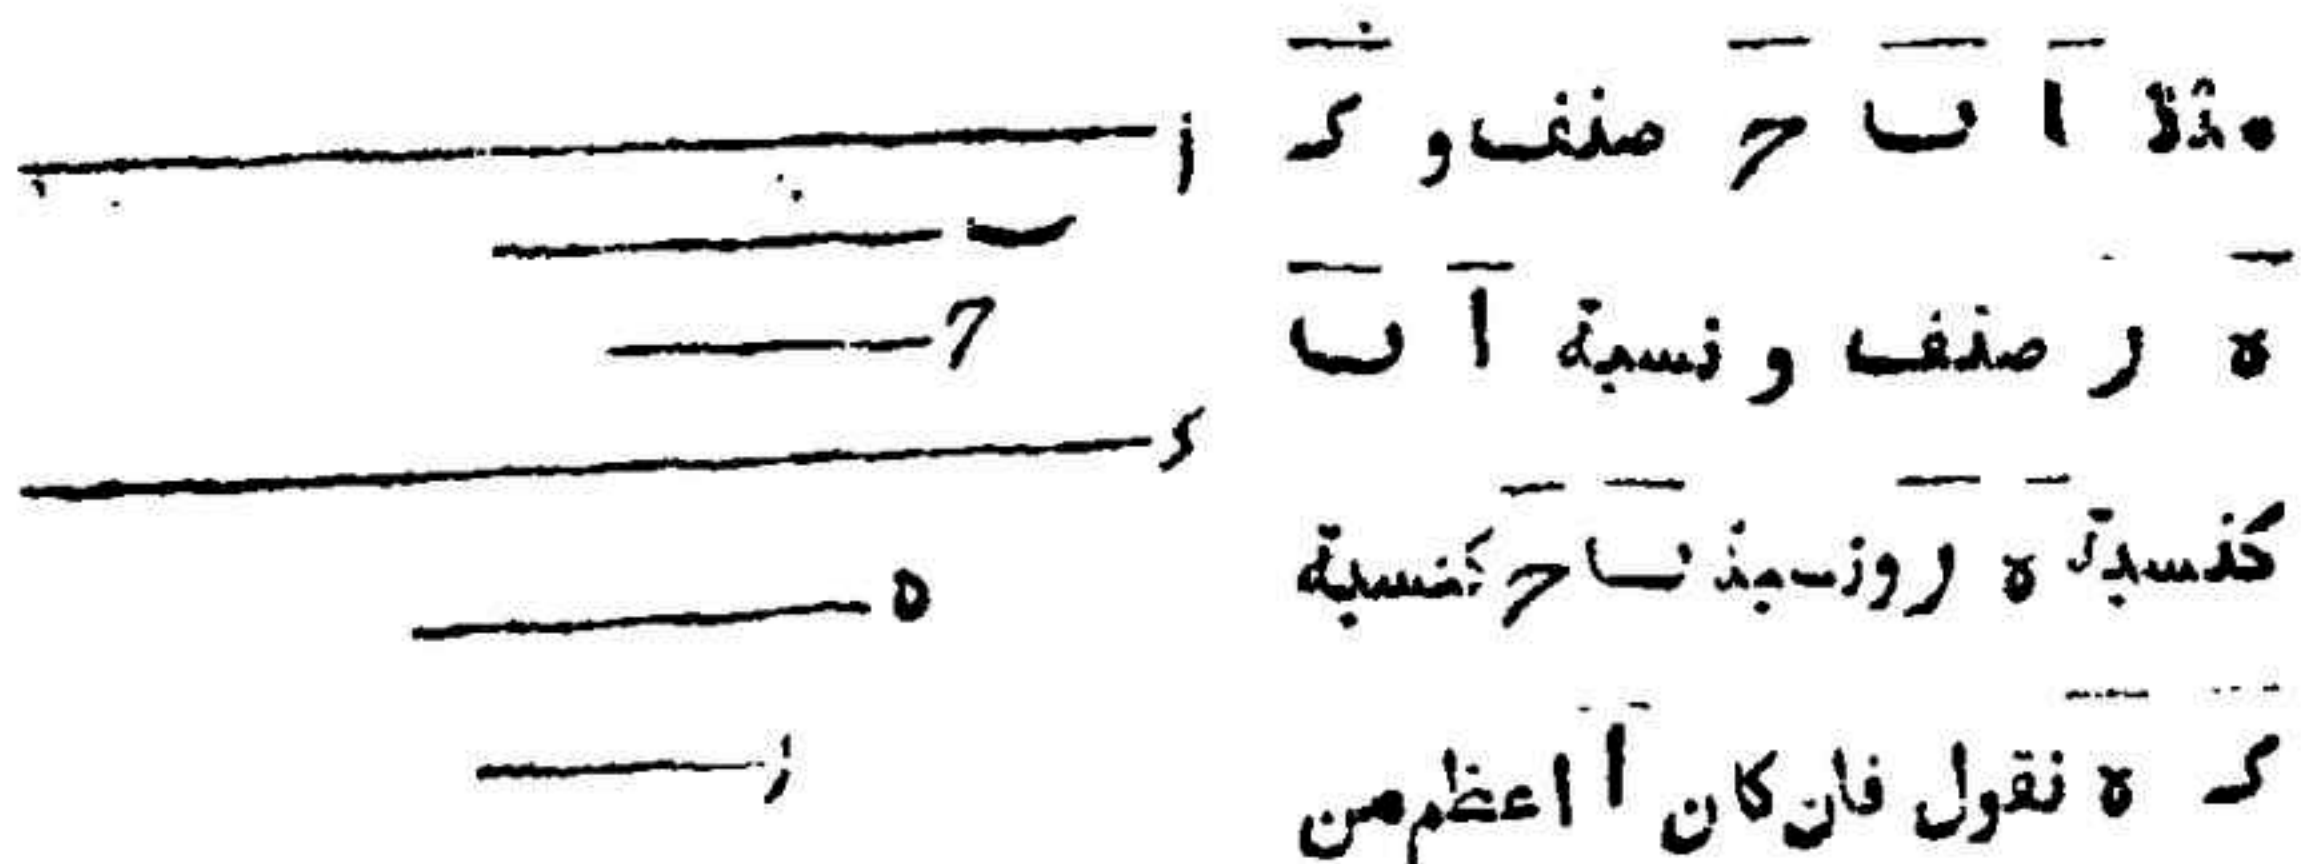 مثلا ا ب ح صنف و د
ه ر صنف و نسبة ا ب
كنسبة ه ر ونسبة ب ح كنسبة
د ه نقول فان كان ا اعظم من
ا
ب
ح
د
ه
ر